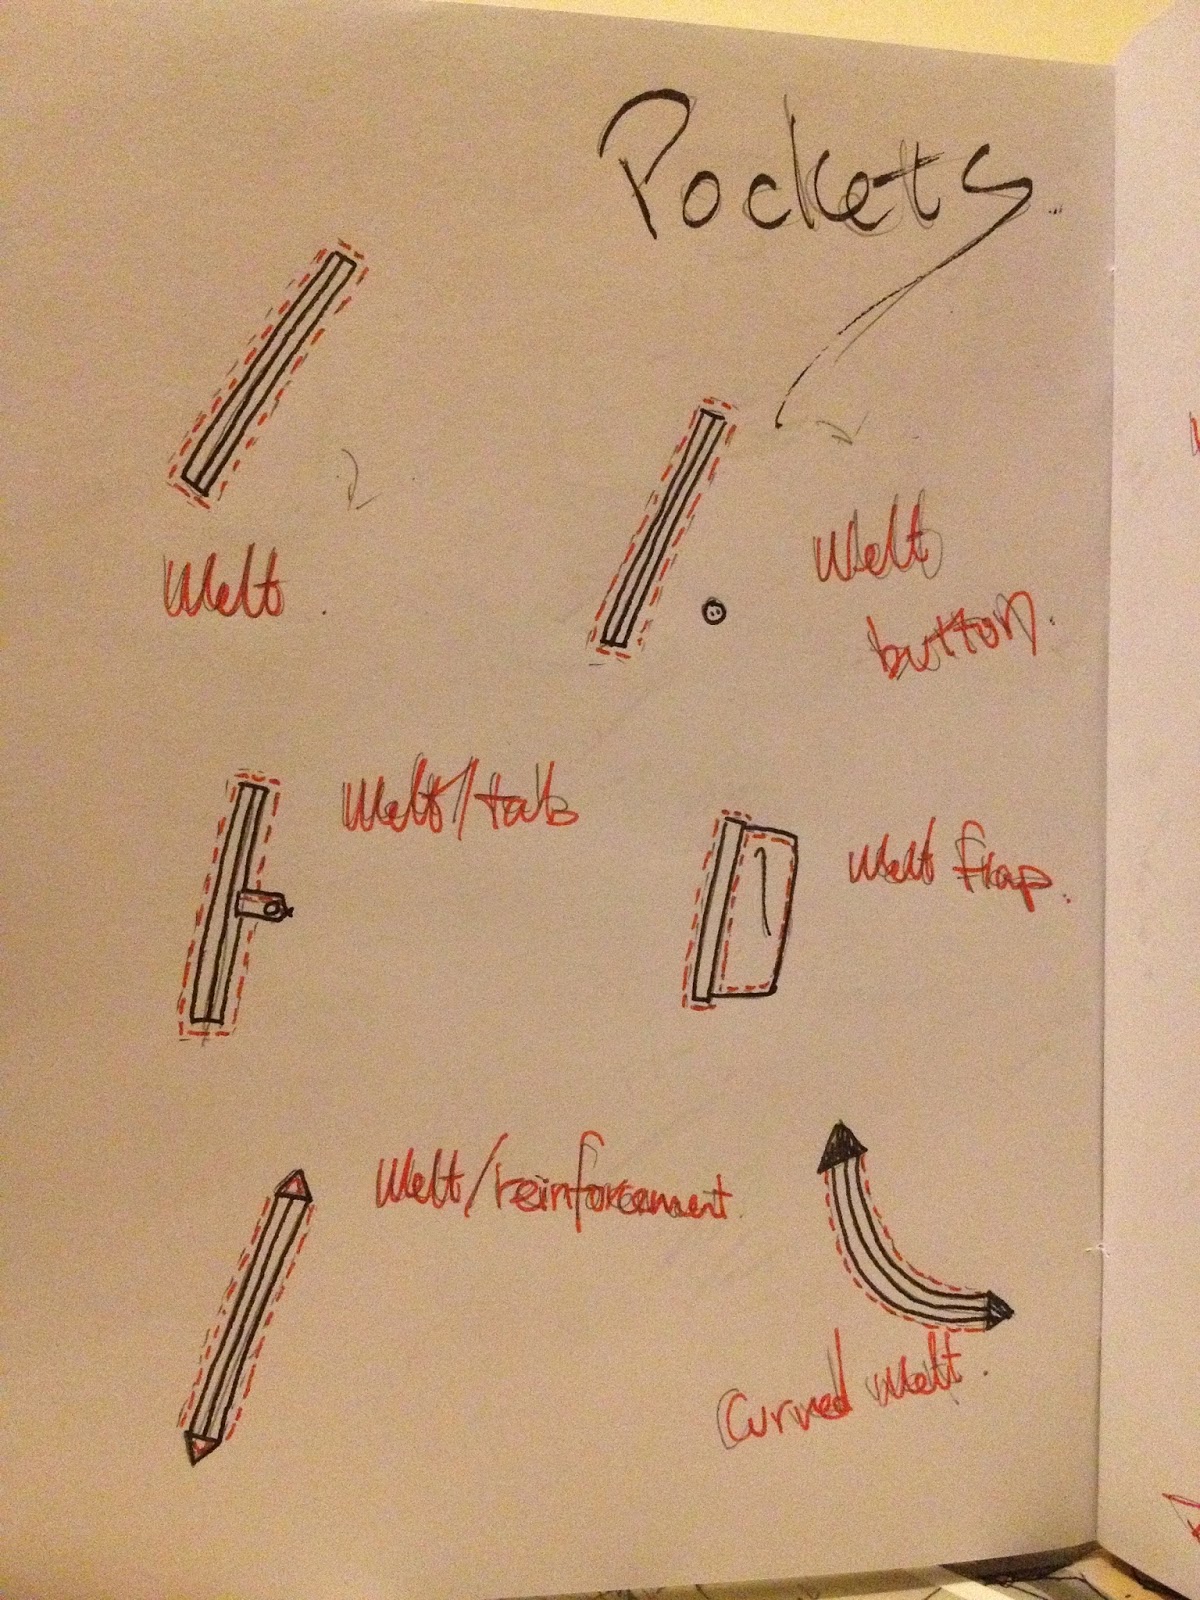 Pockets
Welt
Welt
button
Welt/tab
Welt frap
Welt/reinforcement
Curved Welt